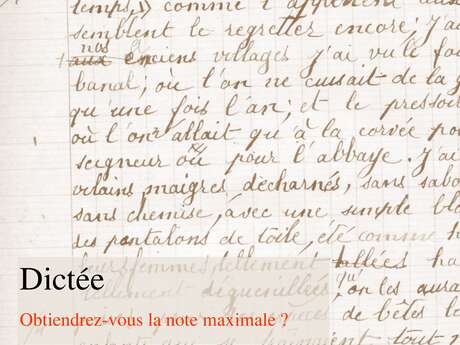 temps,) comme l'apprennent aussi
semblent le regretter encore; J'ai
nos
aux anciens villages j'ai vu le fou
banal; où l'on ne cuisait de la g
qu'une fois l'an; et le pressoir
où l'on allait qu'à la corvée po
seigneur où pour l'abbaye. J'ai
vilains maigres, décharnés, sans sabo
sans chemise, avec une simple blo
des pantalons de toile, été comme h
femmes, tellement ha
tellement déguenillées, qu'on les aura
de bêtes
tout
Dictée
Obtiendrez-vous la note maximale ?